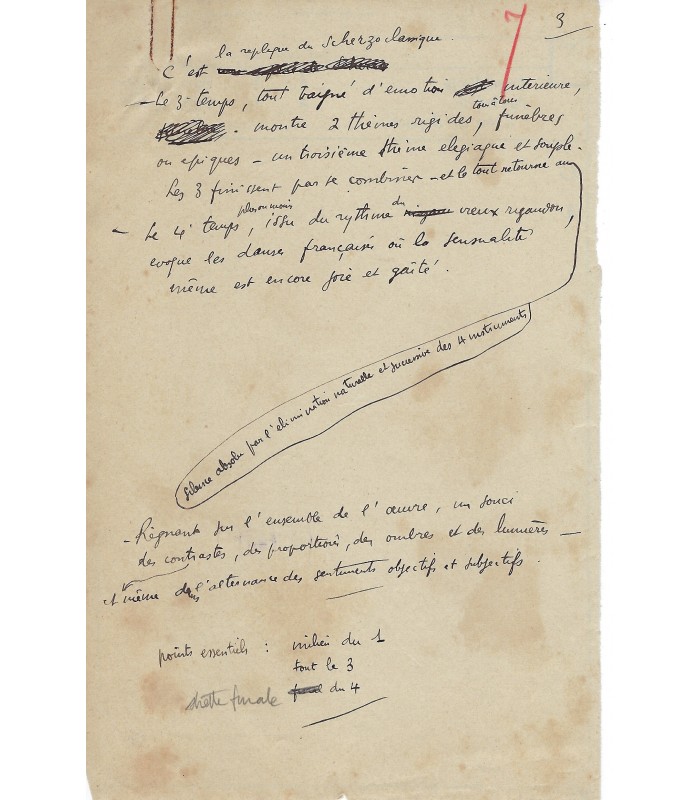 7 3
la replique du Scherzo classique.
C'est
- Le 3e temps, tout baigné d'emotion intérieure,
- montre 2 thèmes rigides, funèbres
ou epiques - un troisième thème elegiaque et souple -
Les 3 finissent par se combiner - et le tout retourne au
plus ou moins
- Le 4e temps, issu du rythme du vieux rigaudon,
evoque les danses françaises où la sensualité
même est encore joie et gaîté.
silence absolu par l'elimination naturelle et successive des 4 instruments
- Règnant sur l'ensemble de l'œuvre, un souci
des contrastes, des proportions, des ombres et des lumières -
et même dans l'alternance des sentiments objectifs et subjectifs.
points essentiels : milieu du 1
tout le 3
strette finale du 4